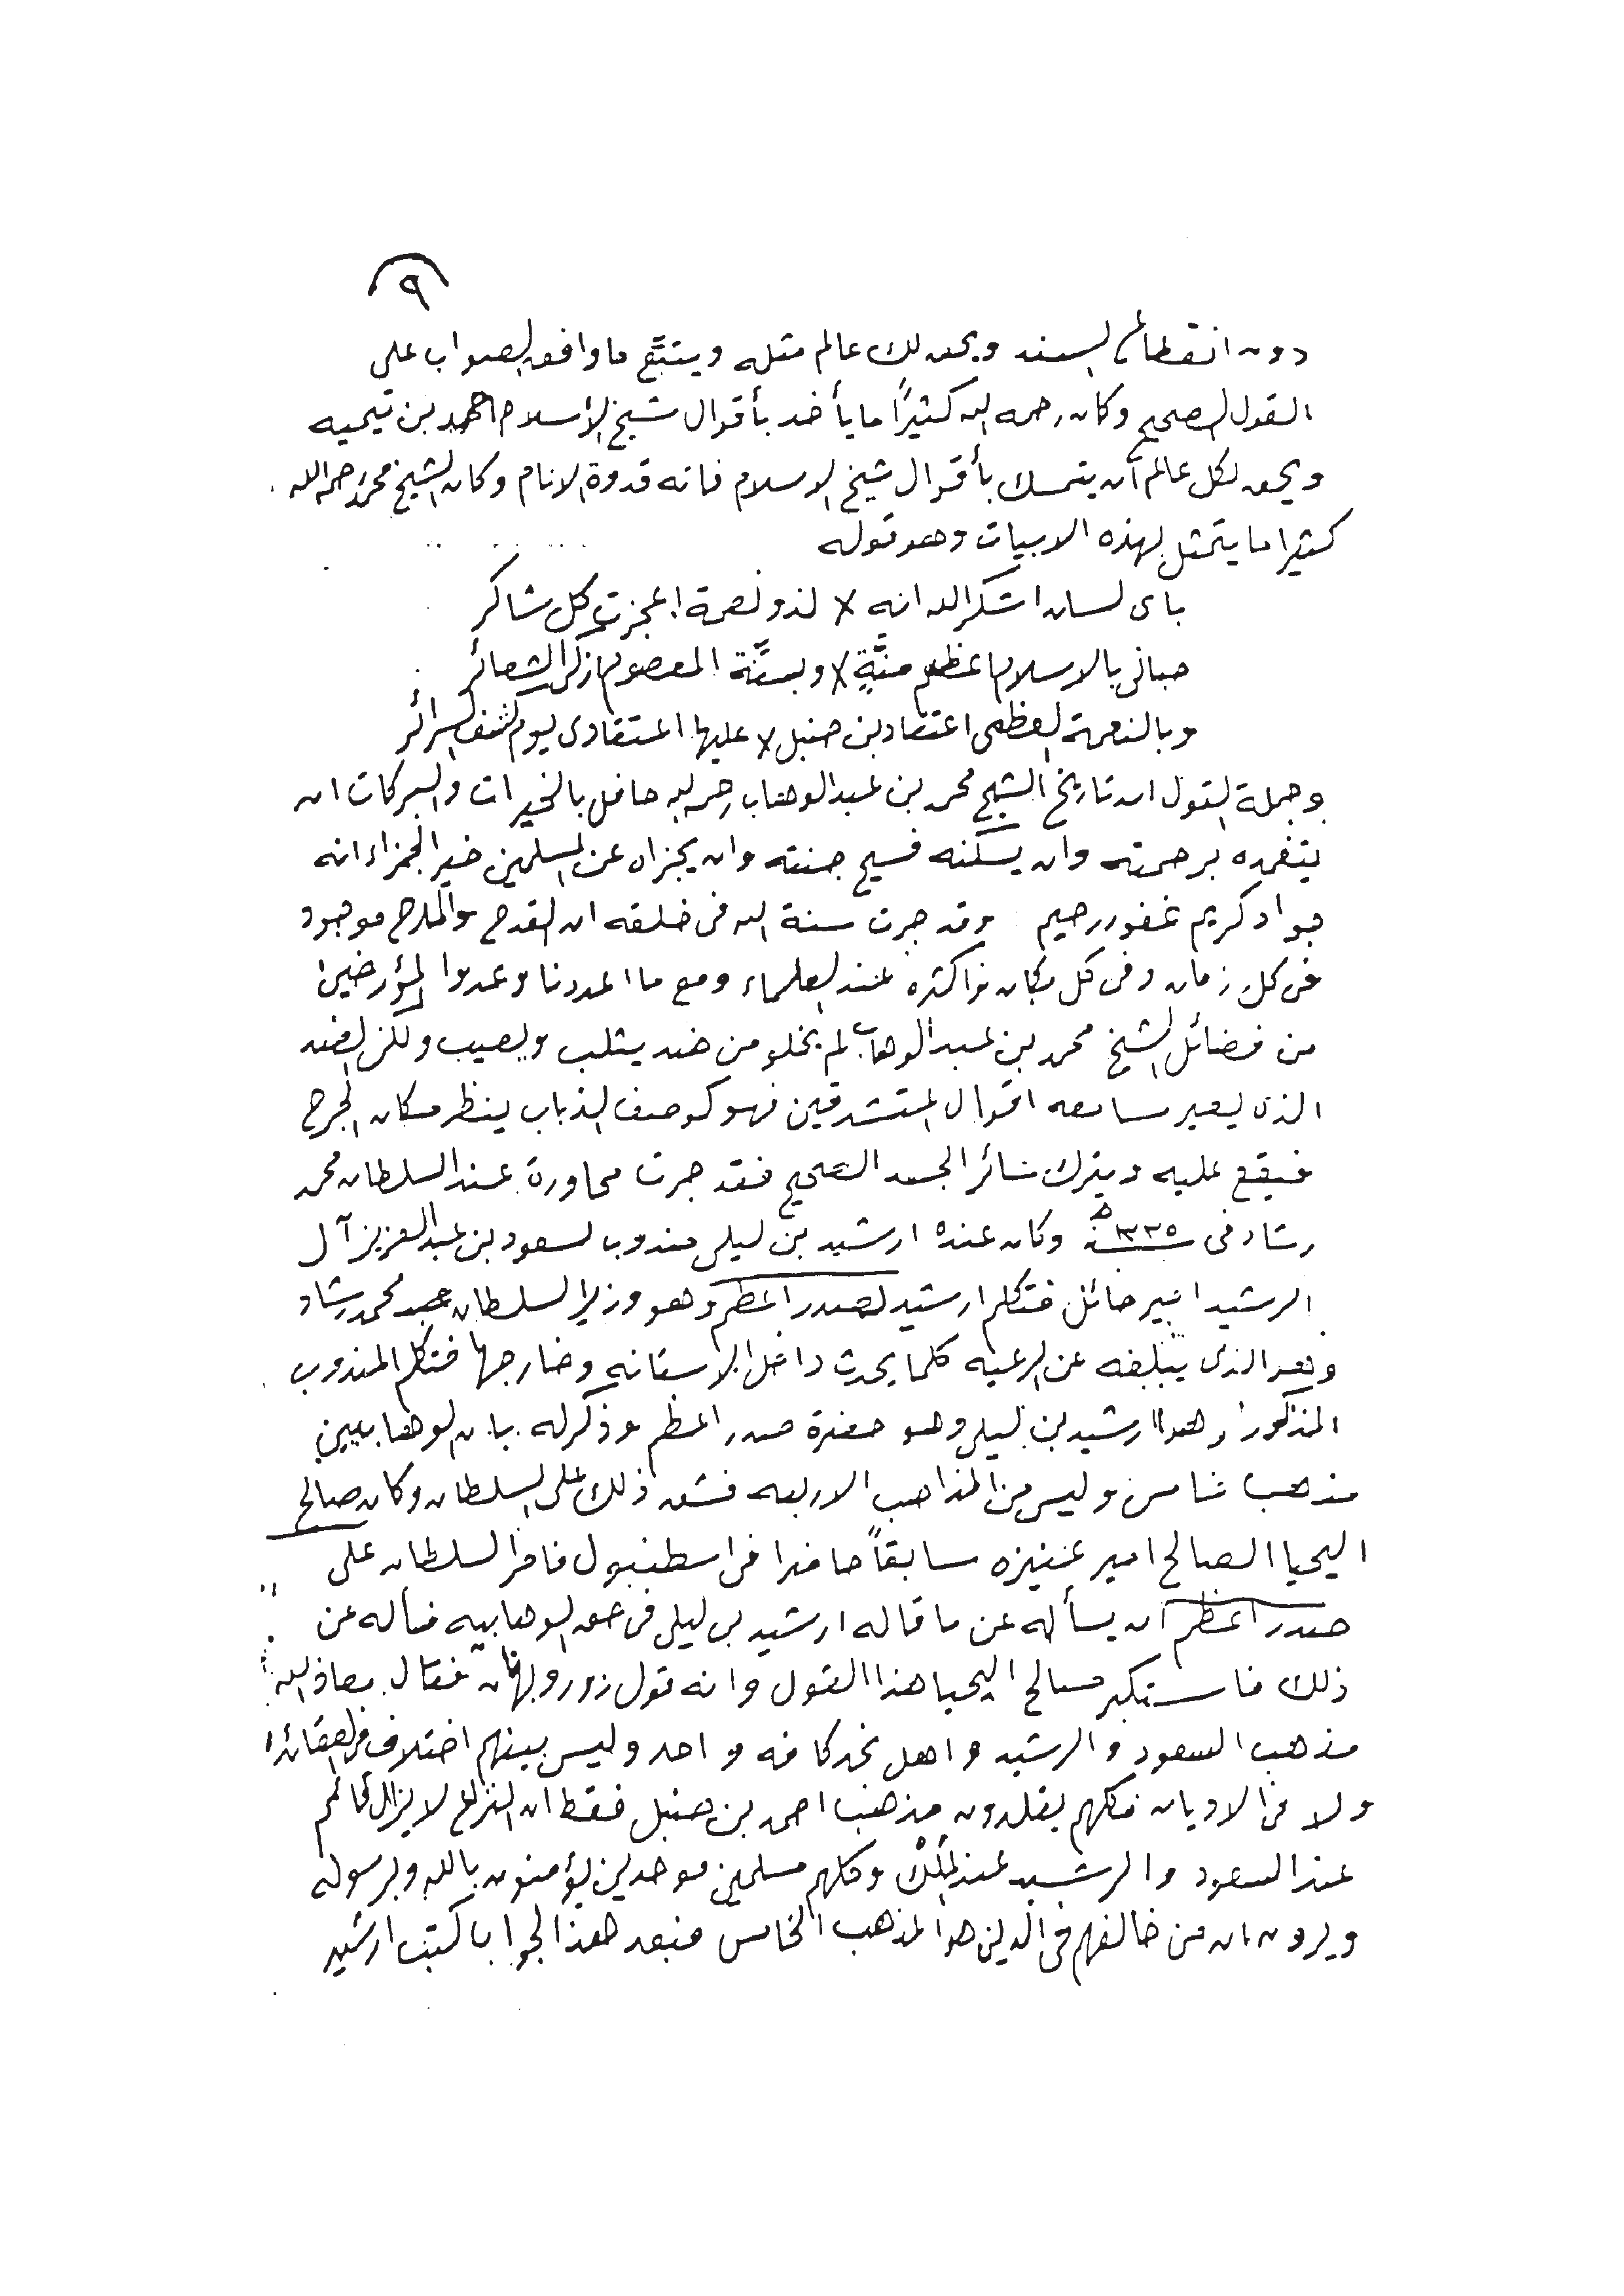 ٩
دون انقطاع السند ويحق لك عالم مثله ويتتبَّع ما وافق الصواب على
القول الصحيح وكان رحمه الله كثيرًا ما يأخد بأقوال شيخ الأسلام احمد بن تيميه
ويحق لكل عالم أن يتمسك بأقوال شيخ الاسلام فانه قدوة الانام وكان الشيخ محمد رحمه الله
كثيرا ما يتمثل بهذه الابيات وهو قوله
باى لسان اشكر الله انه لا لذو نعمة اعجزت كل شاكر
حبانى بالاسلام اعظم منَّةٍ لا وبسنَّة المعصوم ازكى الشعائر
وبالنعمة العظمى اعتقاد بن حنبل لا عليها اعتقادى يوم كشف السرائر
وجملة القول ان تاريخ الشيخ محمد بن عبد الوهاب رحمه الله حافل بالخيرات والبركات ان
يتغمده برحمته وان يسكنه فسيح جنته وان يجزاه عن المسلمين خير الجزاء انه
جواد كريم غفور رحيم وقد جرت سنة الله فى خلقه ان القدح والمدح موجود
فى كل زمان وفى كل مكان واكثره عند العلماء ومع ما اعددنا وعدوا المؤرخين
من فضائل الشيخ محمد بن عبد الوهاب لم يخلو من ضد يثلب ويعيب ولكن الضد
الذى يعير سامعه اقوال المستشرقين فهو كوصف الذباب ينظر مكان الجرح
فيقع عليه ويترك سائر الجسد الصحيح فقد جرت محاورة عند السلطان محمد
رشاد فى سنة ١٣٣٥ه وكان عنده ارشيد بن ليلى مندوب لسعود بن عبد العزيز آل
الرشيد امير حائل فتكلم ارشيد لصدر اعظم وهو وزير السلطان محمد رشاد
وهو الذى يبلغه عن الرعيه كلما يحدث داخل الاستانه وخارجها فتكلم المندوب
المذكور وهو ارشيد بن ليلى وهو حضرة صدر اعظم وذكر له بان لوهابيين
مذهب خامس وليس من المذاهب الاربعه فشق ذلك على السلطان وكان صالح
اليحيا الصالح امير عنيزه سابقاً حاضرا فى اسطنبول فامر السلطان على
صدر اعظم ان يسأله عن ما قاله ارشيد بن ليلى فى حق الوهابيه فسأله عن
ذلك فاستنكر صالح اليحيا هذا القول وانه قول زور وبهتان فقال معاذ الله
مذهب السعود والرشيد واهل نجد كافه واحد وليس بينهم اختلاف فى العقائد
ولا فى الاديان فكلهم يقلدون مذهب احمد بن حنبل فقط ان النزاع لا يزال قائم
عند السعود والرشيد عند المُلْك وكلهم مسلمين موحدين يؤمنون بالله وبرسوله
ويرون ان من خالفهم فى الدين هو المذهب الخامس فبعد هذا الجواب اكتب ارشيد